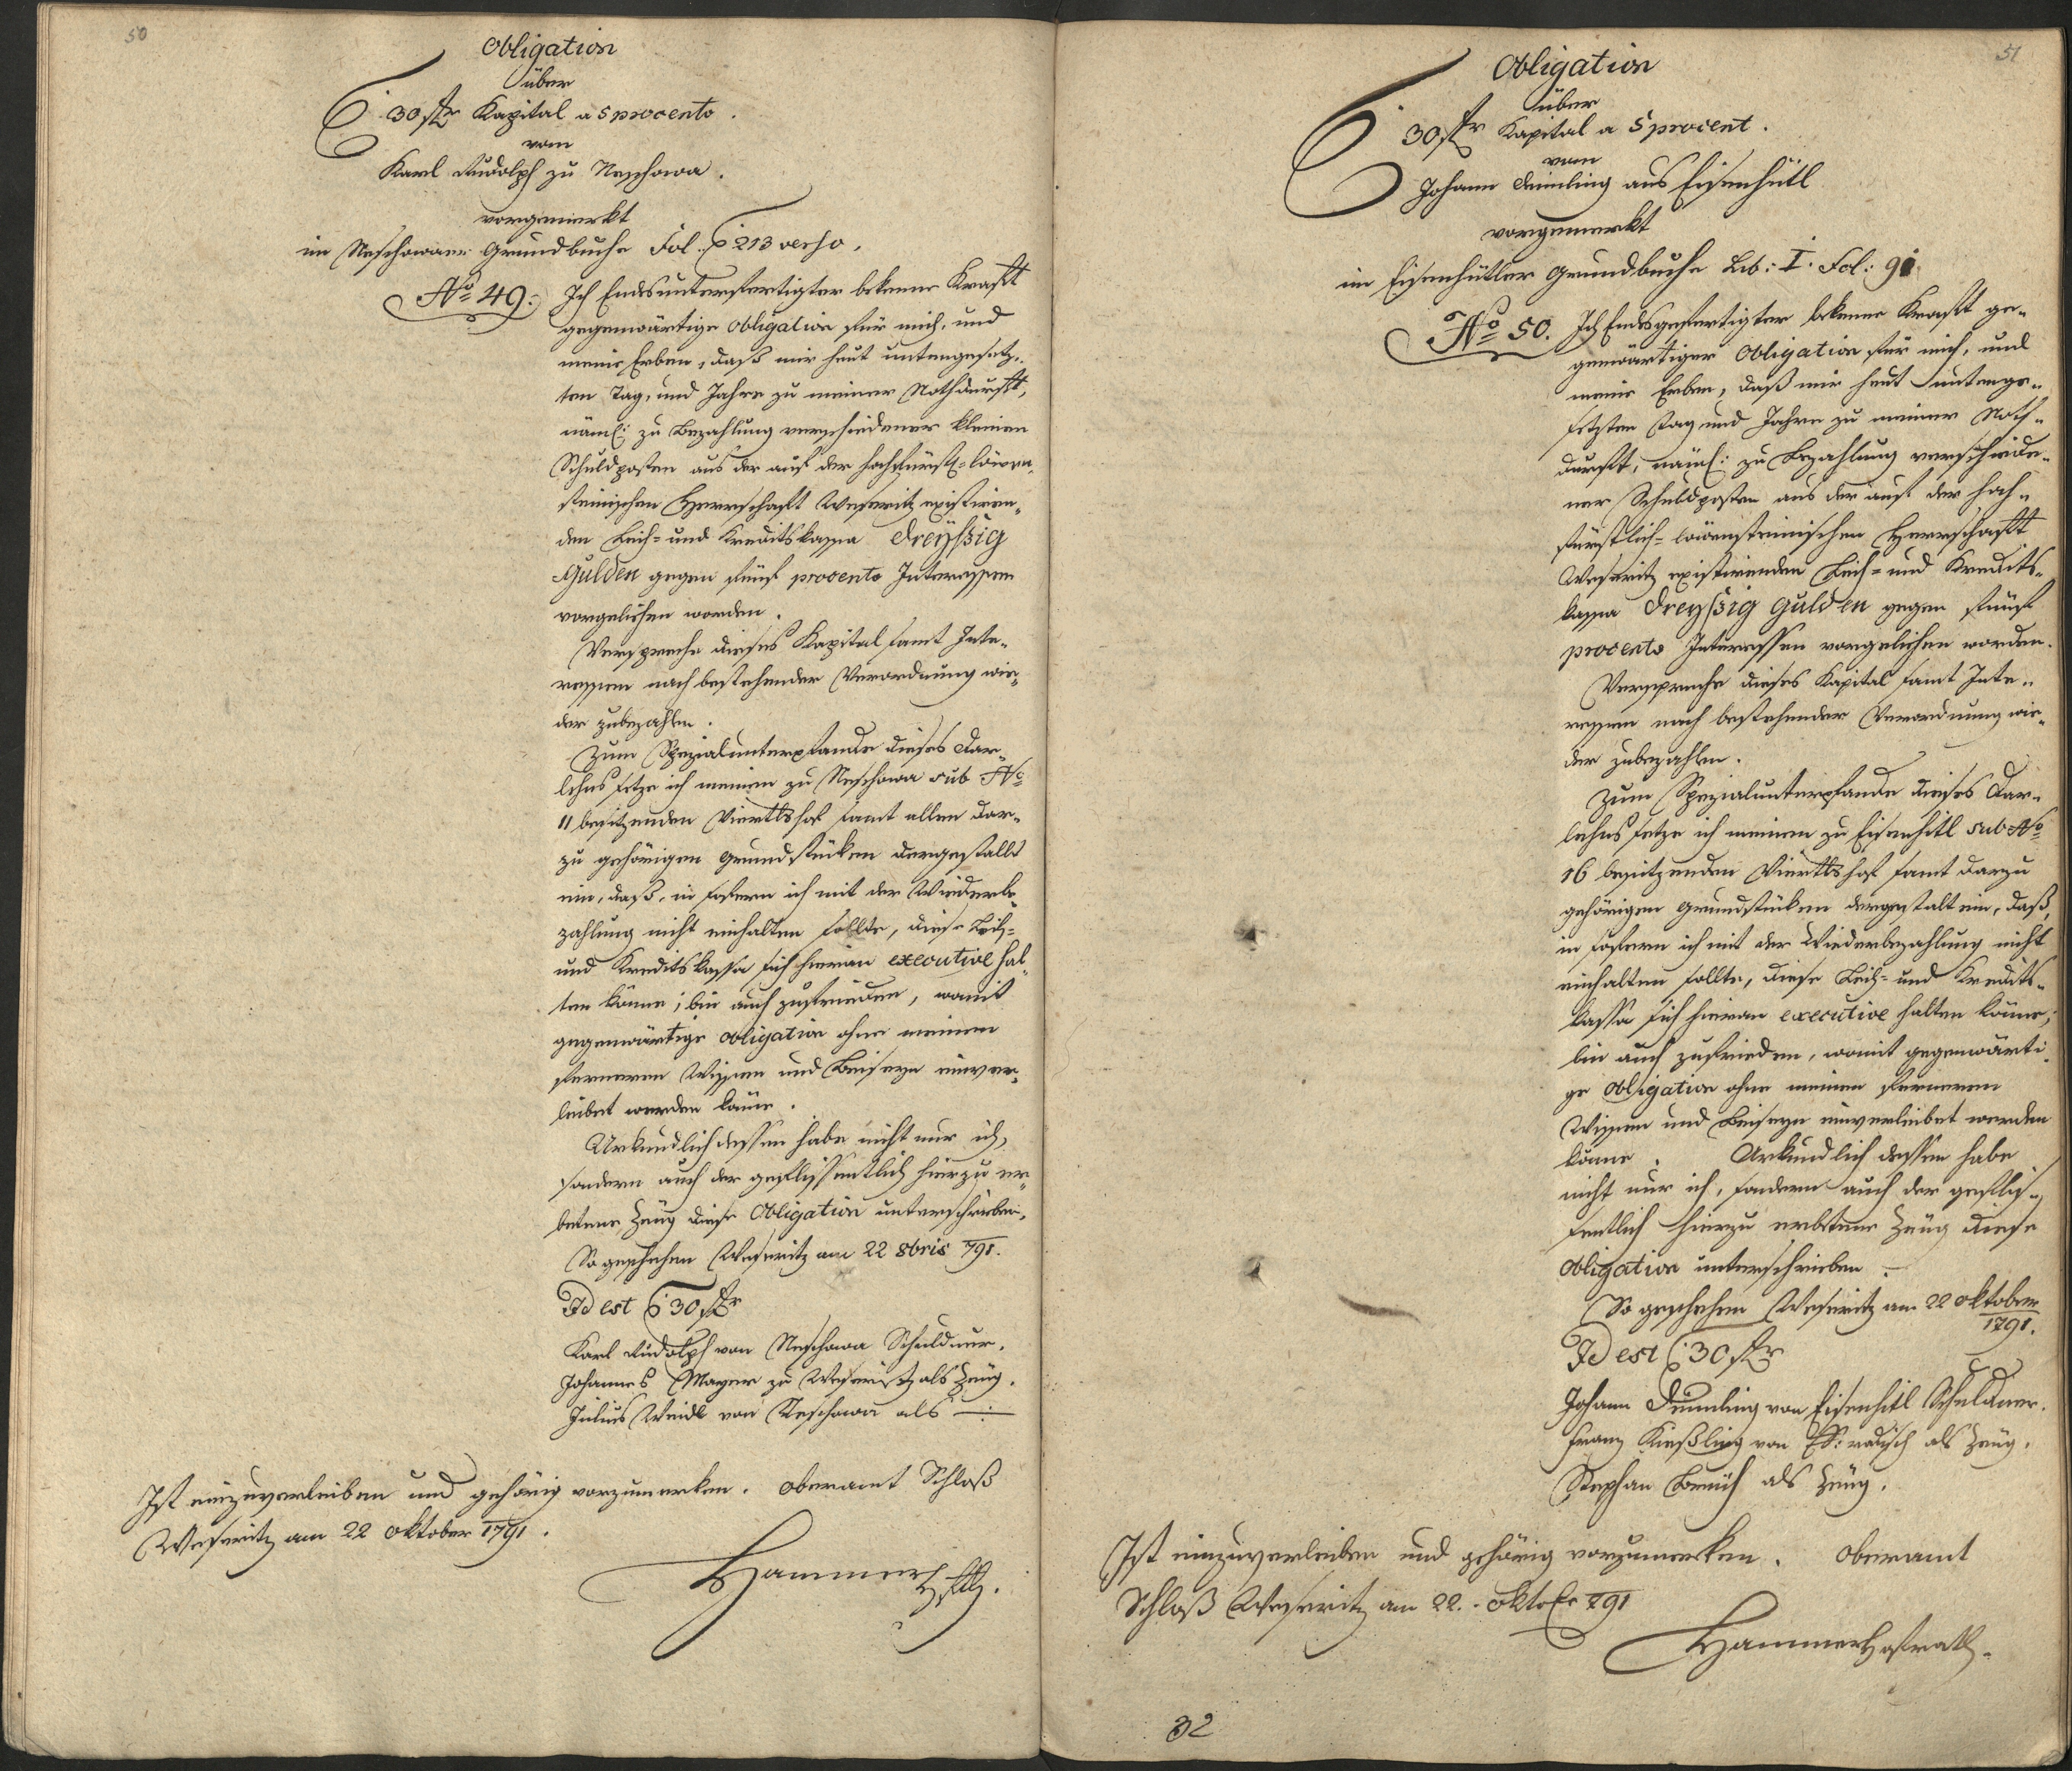 50
Obligation
über
30 fr Kapital a 5 procento.
vom
Karl Rudolph zu Neschowa.
vorgemerkt
im Neschowaer Grundbuche Fol. 213 verso.
No 49. Ich Endesunterfertigter bekenne Kraft
gegenwärtige Obligation für mich, und
meine Erben, daß mir heut untengesetz-
ten Tag, und Jahre zu meiner Nothdurft,
näml: zu Bezahlung verschiedener kleinen
Schuldposten aus der auf der hochfürstl-löwen-
steinischen Herrschaft Weseritz existiren-
den Leih- und Kreditskassa Dreyßig
Gulden gegen fünf procento Interessen
vorgeliehen worden.
Verspreche dieses Kapital samt Inte-
ressen nach bestehender Verordnung wie-
der zubezahlen.
Zum Spezialunterpfande dieses Dar-
lehns setze ich meinen zu Neschowa sub No
11 besitzenden Viertlshof samt allen dar-
zu gehörigen Grundstücken dergestallt
ein, daß, in sofern ich mit der Wiederbe-
zahlung nicht einhalten sollte, diese Leih-
und Kreditskassa sich hieran executive hal-
ten könne; bin auch zufrieden, womit
gegenwärtige Obligation ohne meinen
ferneren Wissen und Beiseyn einver-
leibet werden könne.
Urkundlich dessen habe nicht nur ich,
sondern auch der geflissentlich hierzu er-
betene Zeug diese Obligation unterschrieben.
So geschehen Weseritz am 22 8bris 791.
Id est 30 fr
Karl Rudolph von Neschowa Schuldner.
Johannes Mayer zu Weseritz als Zeug.
Julius Weidl von Neschowa als —:—
Ist einzuverleiben und gehörig vorzumerken. Oberamt Schloß
Weseritz am 22 Oktober 1791.
Hammer
51
Obligation
über
30 fr Kapital a 5 procent.
vom
Johann Deimling aus Eisenhütl
vorgemerkt
im Eisenhütler Grundbuche Lib: I. Fol: 91
No 50. Ich Endesgefertigter bekenne Kraft ge-
genwärtiger Obligation für mich, und
meine Erben, daß mir heut untenge-
setzten Tag und Jahre zu meiner Noth-
durft, näml: zu Bezahlung verschiede-
ner Schuldposten aus der auf der hoch-
fürstlich-löwensteinischen Herrschaft
Weseritz existirenden Leih- und Kredits-
kassa Dreyßig Gulden gegen fünf
procento Interessen vorgeliehen worden.
Verspreche dieses Kapital samt Inte-
ressen nach bestehender Verordnung wie-
der zubezahlen.
Zum Spezialunterpfande dieses Dar-
lehns setze ich meinen zu Eisenhütl sub No
16 besitzenden Viertlshof samt darzu
gehörigen Grundstücken dergestalt ein, daß,
in sofern ich mit der Wiederbezahlung nicht
einhalten sollte, diese Leih- und Kredits-
kassa sich hieran executive halten könne;
bin auch zufrieden, womit gegenwärti-
ge Obligation ohne meinen ferneren
Wissen und Beiseyn einverleibet werden
könne. Urkundlich dessen habe
nicht nur ich, sondern auch der geflis-
sentlich hierzu erbetene Zeug diese
Obligation unterschrieben.
So geschehen Weseritz am 22 Oktober
1791.
Id est 30 fr
Johann Deimling von Eisenhitl Schuldner.
Franz Kießling von als Zeug.
Stephan als Zeug.
Ist einzuverleiben und gehörig vorzumerken. Oberamt
Schloß Weseritz am 22. Oktober 791
Hammer Hofrath.
32